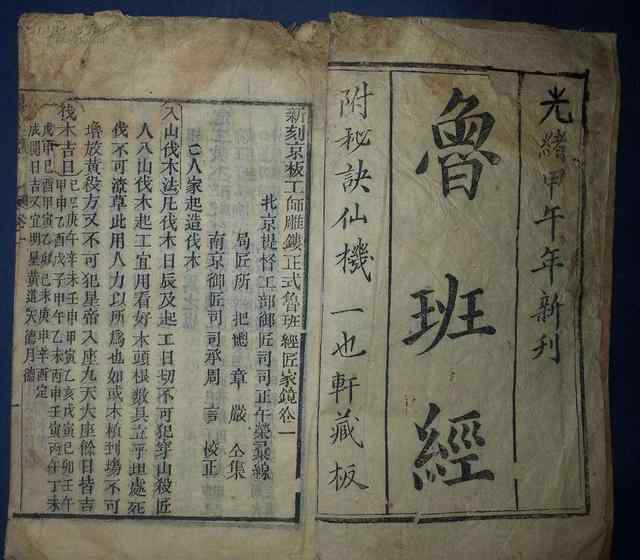 光緒甲午年新刊
魯班經
附秘訣仙機 一也軒藏板
新刻京板工師雕鏤正式魯班經匠家鏡卷一
北京提督工部御匠司司正午榮彙編
局匠所 把總 章嚴 仝集
南京御匠司司承周言 校正
人家起造伐木
入山伐木法凡伐木日辰及起工日切不可犯穿山殺匠
人入山伐木起工宜用看好木頭根數具立平坦處死
伐不可潦草此用人力以所為也如或木植到場不可
堆放黃殺方又不可犯皇帝入座九天大座餘日皆吉
伐木吉日己巳庚午辛未壬申甲寅乙亥戊寅己卯壬午
甲申乙酉戊子甲午乙未丙申壬寅丙午丁未
戊申己酉甲寅乙卯己未庚申辛酉定
成開日吉又宜明星黃道天德月德